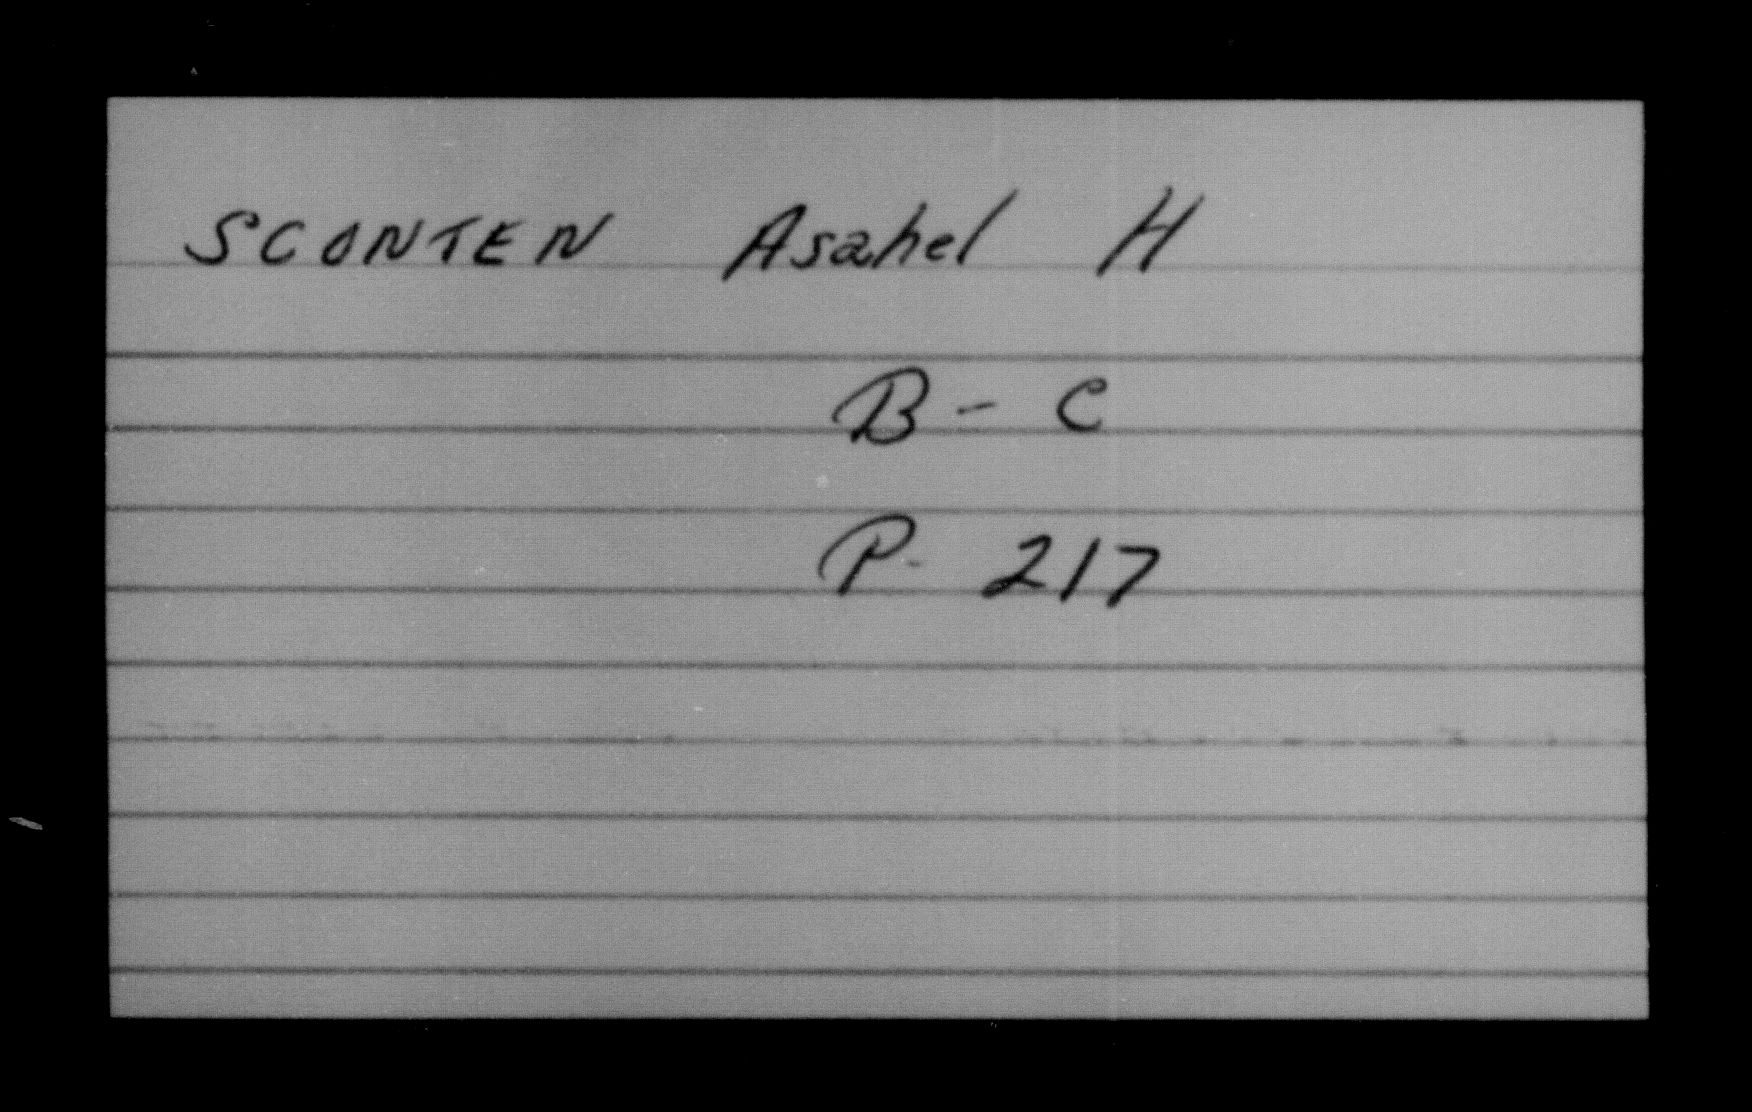 SCONTEN Asahel H
B - C
P- 217